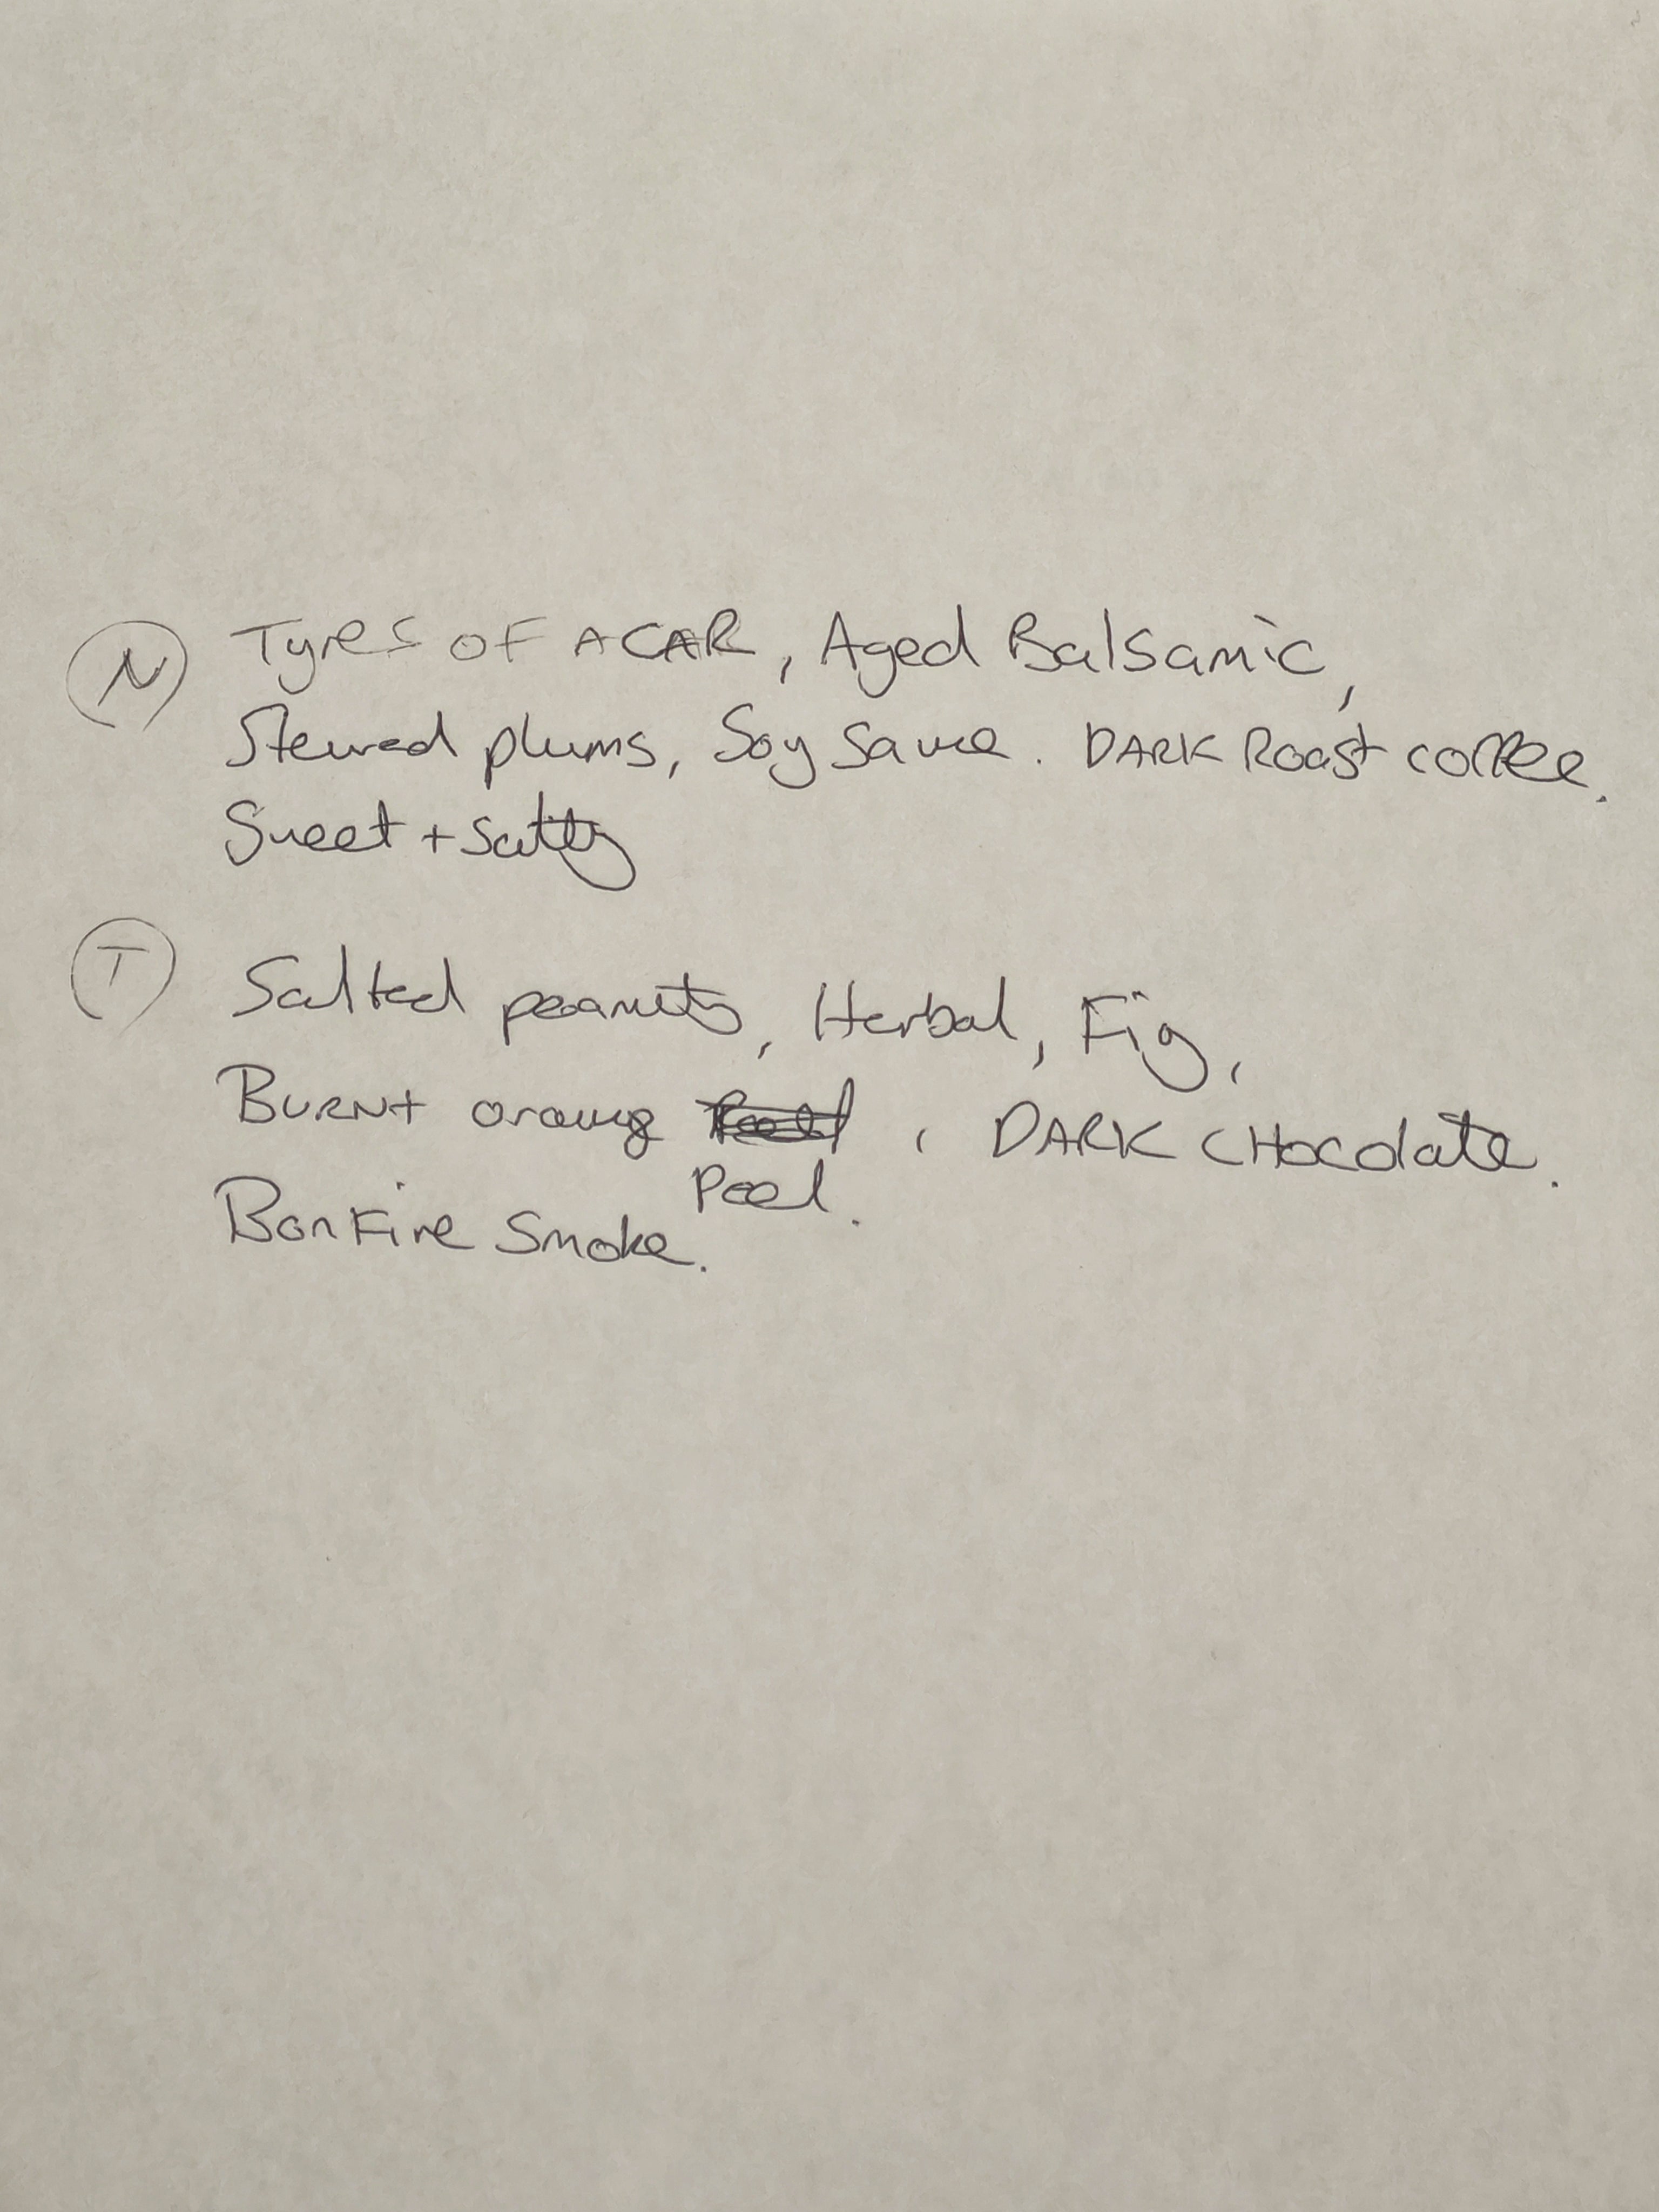 N Tyres OF A CAR, Aged Balsamic,
Stewed plums, Soy Sauce. DARK Roast coffee.
Sweet + Salty
T Salted peanuts, Herbal, Fig,
BURNt orange , DARK CHocolate.
Peel.
BonFire Smoke.